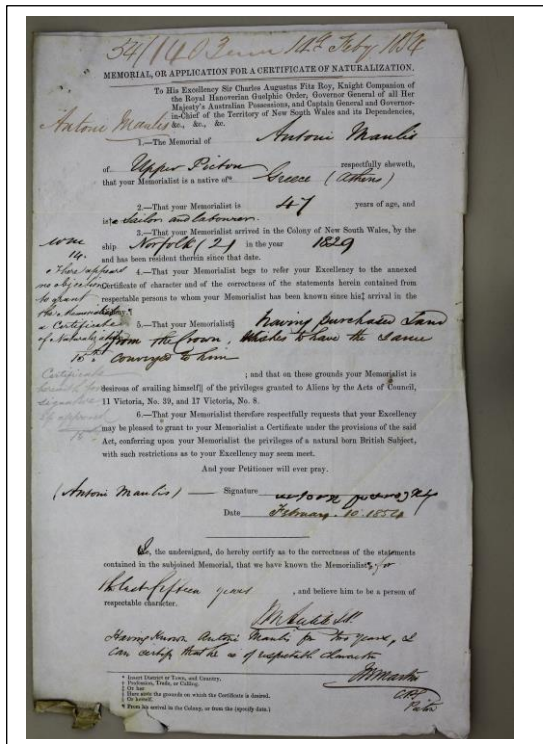 54/1140 14th Feby 1854
MEMORIAL, OR APPLICATION FOR A CERTIFICATE OF NATURALIZATION.
To His Excellency Sir Charles Augustus Fitz Roy, Knight Companion of
the Royal Hanoverian Guelphic Order, Governor General of all Her
Majesty's Australian Possessions, and Captain General and Governor-
in-Chief of the Territory of New South Wales and its Dependencies,
&c., &c., &c.
Antoni Manlis
1.—The Memorial of Antoni Manlis
of Upper Picton respectfully sheweth,
that your Memorialist is a native of* Greece (Athens)
2.—That your Memorialist is 47 years of age, and
is† a Sailor and labourer.
3.—That your Memorialist arrived in the Colony of New South Wales, by the
ship Norfolk (2) in the year 1829
and has been resident therein since that date.
14.
There appears
no objection
to grant
the Memorialist
a Certificate
of Naturalization
15th
4.—That your Memorialist begs to refer your Excellency to the annexed
Certificate of character and of the correctness of the statements herein contained from
respectable persons to whom your Memorialist has been known since his‡ arrival in the
5.—That your Memorialist§ having purchased Land
from the Crown, wishes to have the same
conveyed to him
Certificate
herewith for
signature
if approved
; and that on these grounds your Memorialist is
desirous of availing himself|| of the privileges granted to Aliens by the Acts of Council,
11 Victoria, No. 39, and 17 Victoria, No. 8.
6.—That your Memorialist therefore respectfully requests that your Excellency
may be pleased to grant to your Memorialist a Certificate under the provisions of the said
Act, conferring upon your Memorialist the privileges of a natural born British Subject,
with such restrictions as to your Excellency may seem meet.
And your Petitioner will ever pray.
(Antoni Manlis) — Signature
Date February 10 1854
We, the undersigned, do hereby certify as to the correctness of the statements
contained in the subjoined Memorial, that we have known the Memorialist¶ for
the last fifteen years , and believe him to be a person of
respectable character.
Having known Antoni Manlis for two years, I
can certify that he is of respectable character
Picton
* Insert District or Town, and Country.
† Profession, Trade, or Calling.
‡ Or her.
§ Here state the grounds on which the Certificate is desired.
|| Or herself.
¶ From his arrival in the Colony, or from the (specify date.)